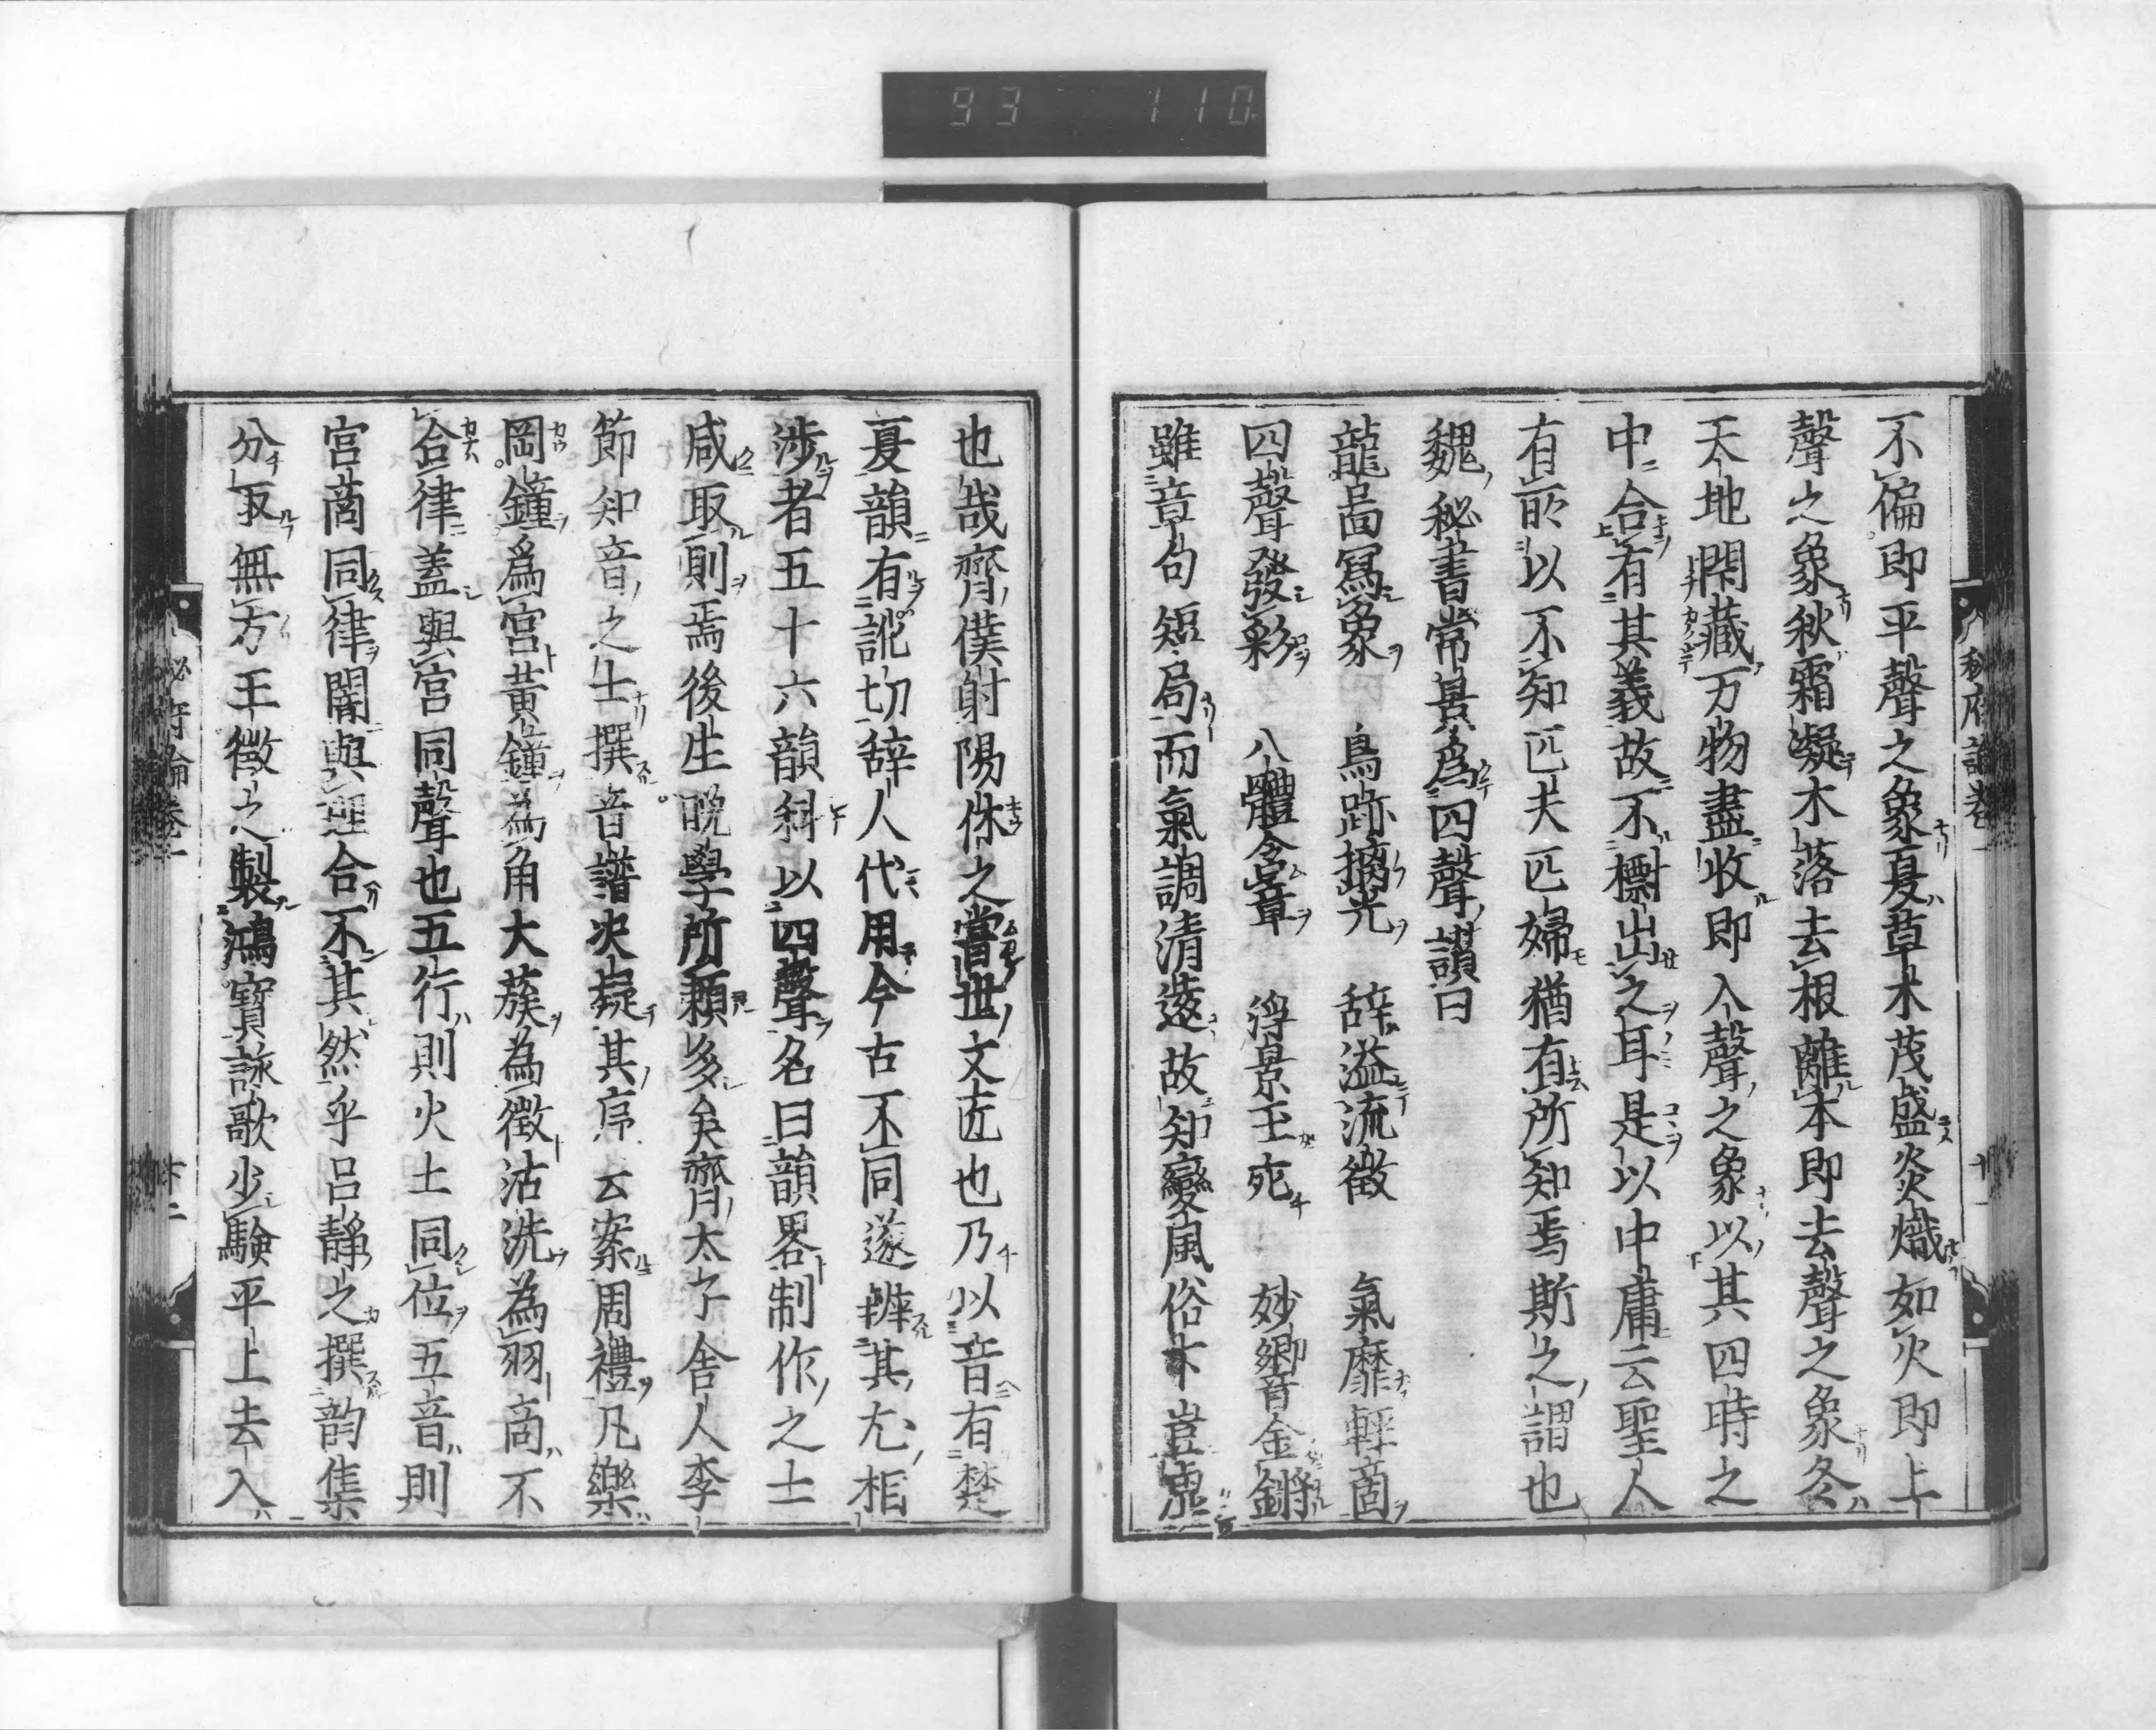 93 110
不偏即平聲之象夏草木茂盛炎熾如火即上
聲之象秋霜凝木落去根離本即去聲之象冬
天地閇藏万物盡收即入聲之象以其四時之
中合有其義故不標出之耳是以中庸云聖人
有所以不知匹夫匹婦猶有所知焉斯之謂也
魏秘書常景爲四聲讃曰
龍啚寫象 鳥跡摛光 辞溢流徵 氣靡輕商
四聲發彩 八體含章 浮景玉苑 妙響金鏘
雖章句短局而氣調清遠故知變風俗下豈虛
也哉齊僕射陽休之當世文匠也乃以音有楚
夏韻有訛切辞人代用今古不同遂辨其尤相
涉者五十六韻科以四聲名曰韻畧制作之士
咸取則焉後生晩學所頼多矣齊太子舎人李
節知音之士撰音譜决擬其序云案周禮凡樂
圜鐘爲宮黃鐘為角大蔟為徵沽洗為羽商不
合律蓋與宮同聲也五行則火土同位五音則
宮商同律闇與理合不其然乎呂靜之撰韵集
分取無方王徴之製鴻寶詠歌少験平上去入
秘府論卷一 十一
秘府論卷一 十二